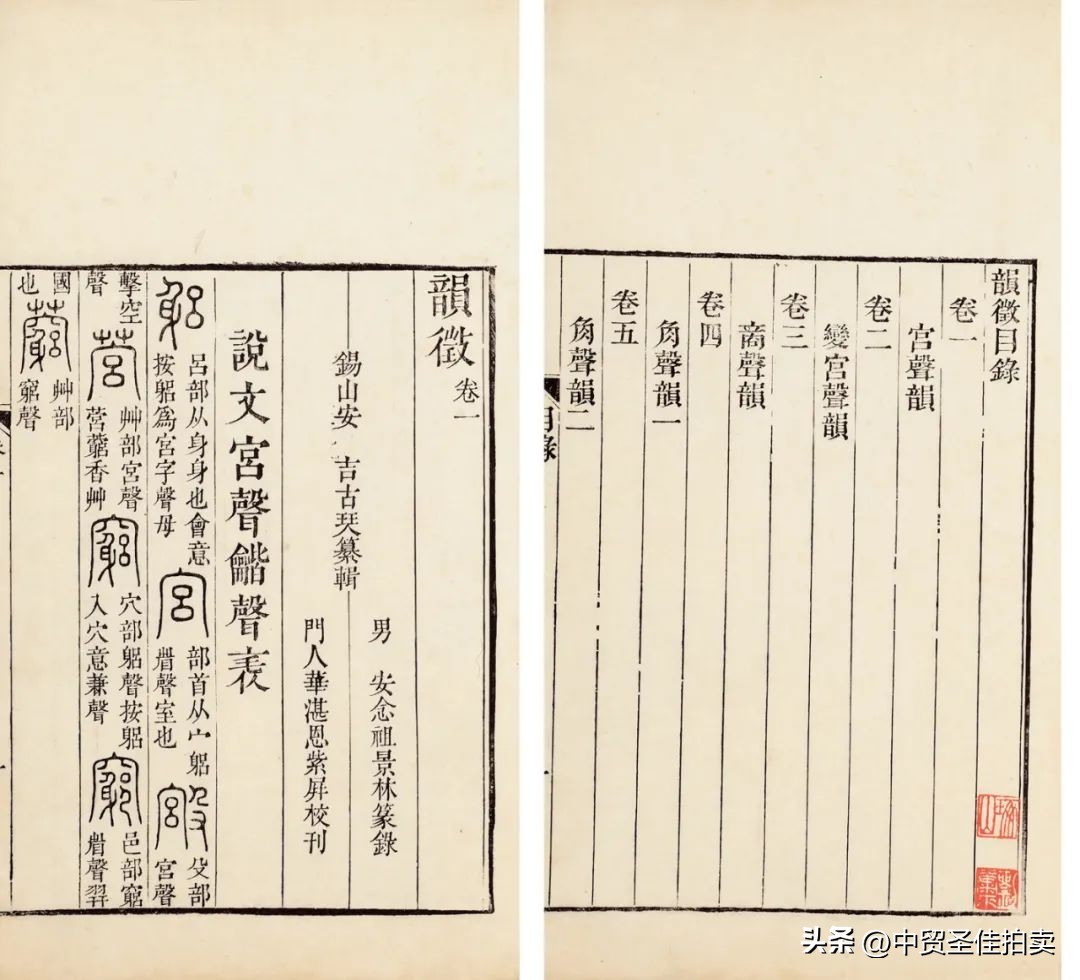 韻徵目錄
卷一
宮聲韻
卷二
變宮聲韻
卷三
商聲韻
卷四
角聲韻一
卷五
角聲韻二
目錄
韻徵 卷一
男 安念祖景林篆錄
錫山安 吉古琹纂輯
門人華湛恩紫屏校刊
說文宮聲龤聲表
躳 呂部从身身也會意
按躳為宮字聲母
宮 部首从宀躳
省聲室也
殳部
宮聲
擊空
聲
营 艸部宮聲
营藭香艸
竆 穴部躳聲按躳
入穴意兼聲
邑部竆
省聲羿
國
也
藭 艸部
竆聲
头条 @中贸圣佳拍卖